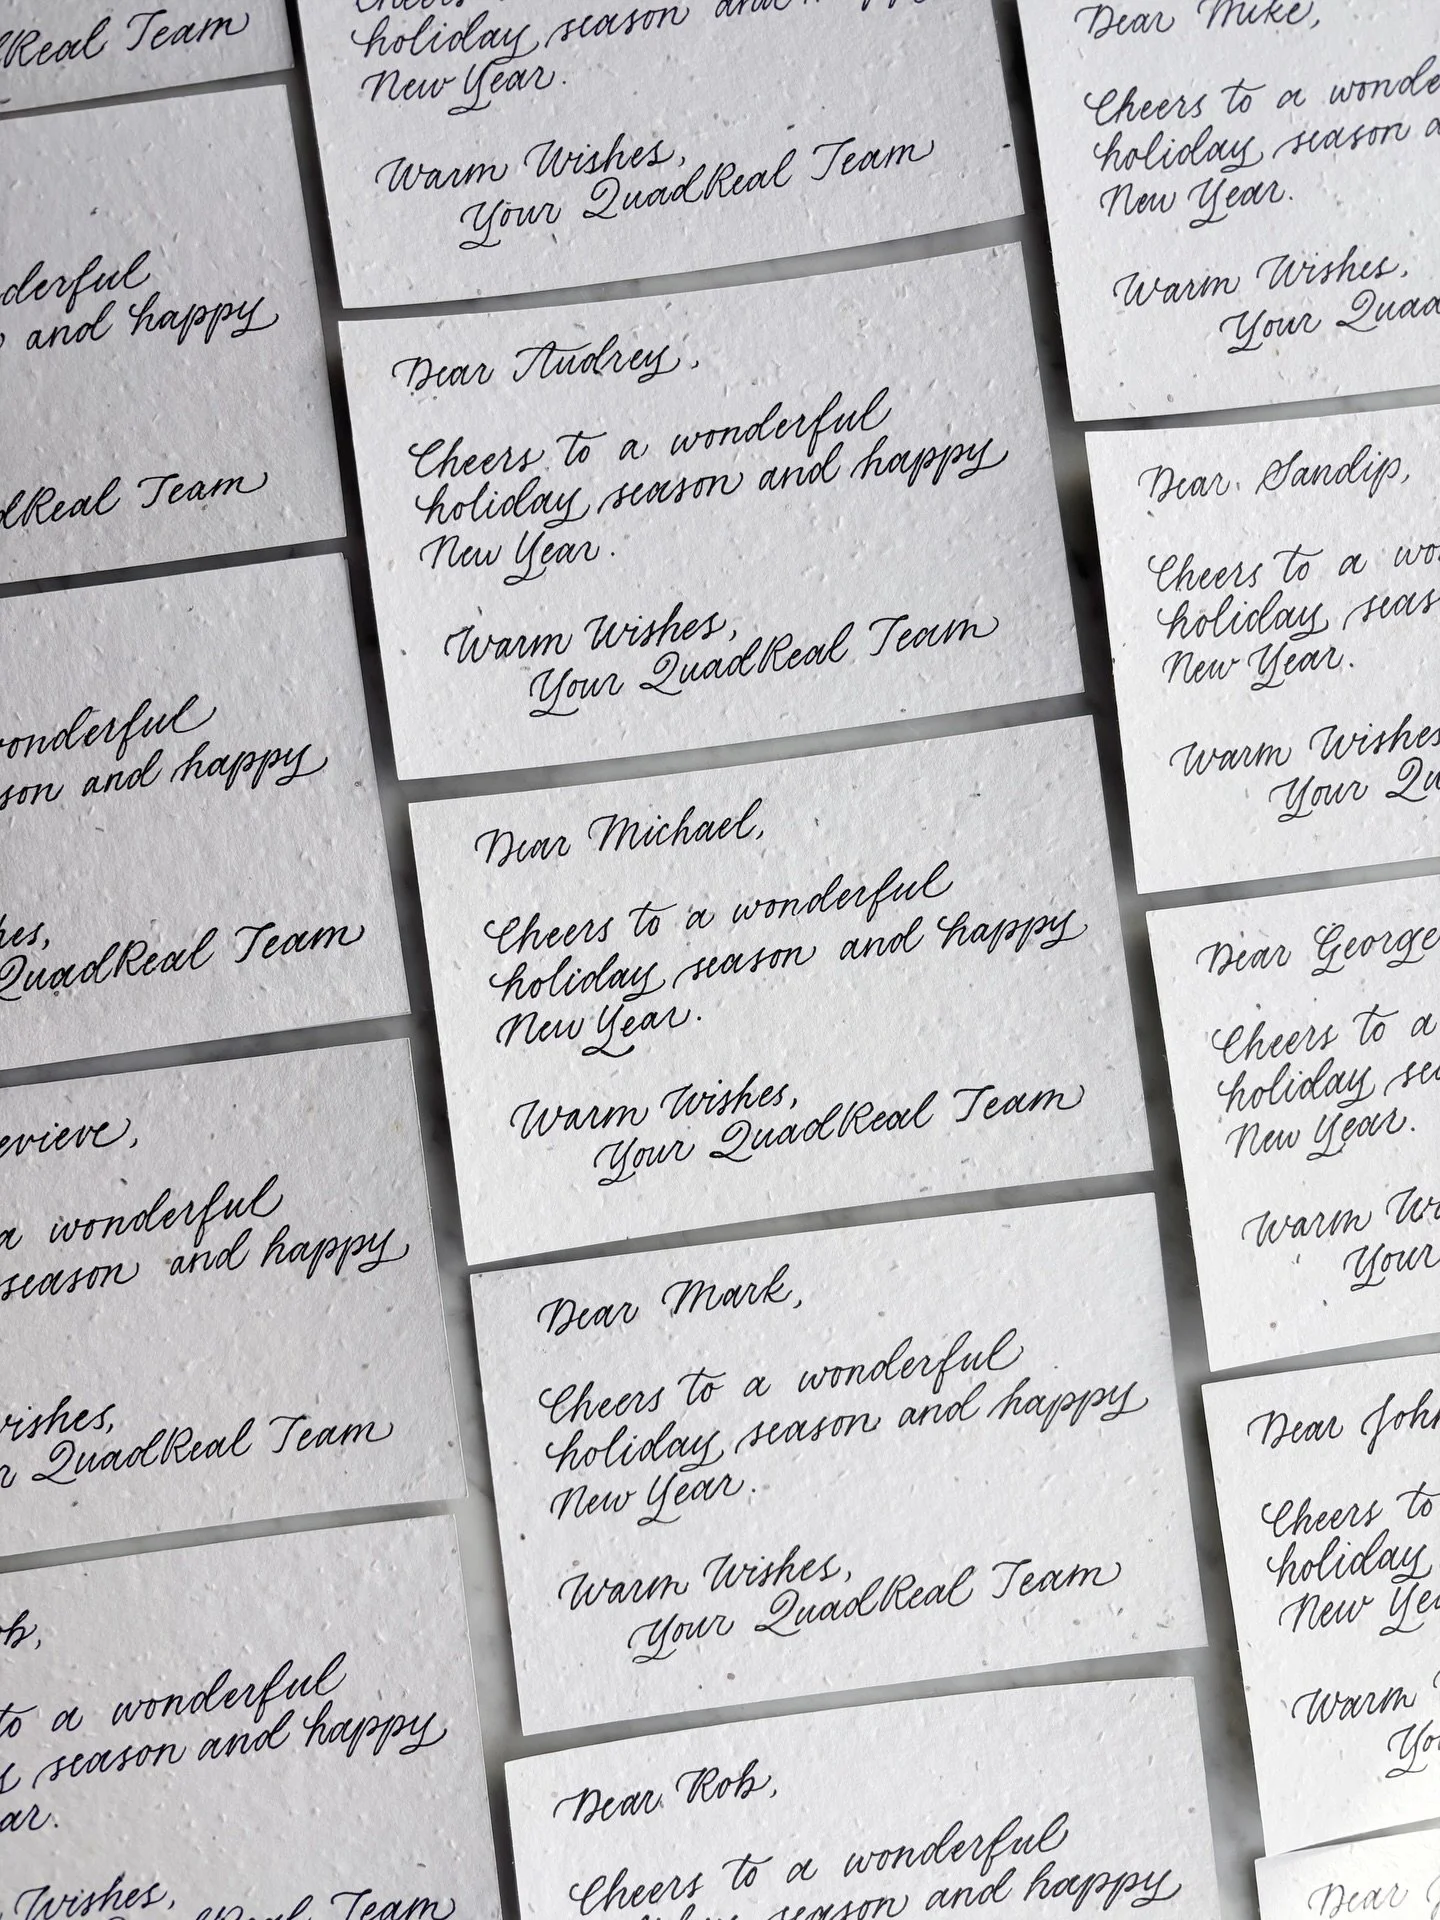 dReal Team
derful
and happy
dReal Team
wonderful
son and happy
hes,
QuadReal Team
evieve,
a wonderful
season and happy
wishes,
r QuadReal Team
ob,
to a wonderful
season and happy
ar.
Wishes,
QuadReal Team
Cheers
holiday season and happy
New Year.
Warm Wishes,
Your QuadReal Team
Dear Audrey,
Cheers to a wonderful
holiday season and happy
New Year.
Warm Wishes,
Your QuadReal Team
Dear Michael,
Cheers to a wonderful
holiday season and happy
New Year.
Warm Wishes,
Your QuadReal Team
Dear Mark,
Cheers to a wonderful
holiday season and happy
New Year.
Warm Wishes,
Your QuadReal Team
Dear Rob,
Cheers to a wonderful
season and happy
Dear Mike,
Cheers to a wonde
holiday season a
New Year.
Warm Wishes,
Your Quad
Dear Sandip,
Cheers to a wo
holiday seas
New Year.
Warm Wishes
Your Qu
Dear George
Cheers to a
holiday se
New Year.
Warm Wi
Your
Dear John
Cheers to
holiday
New Yea
Warm
Yo
Dear